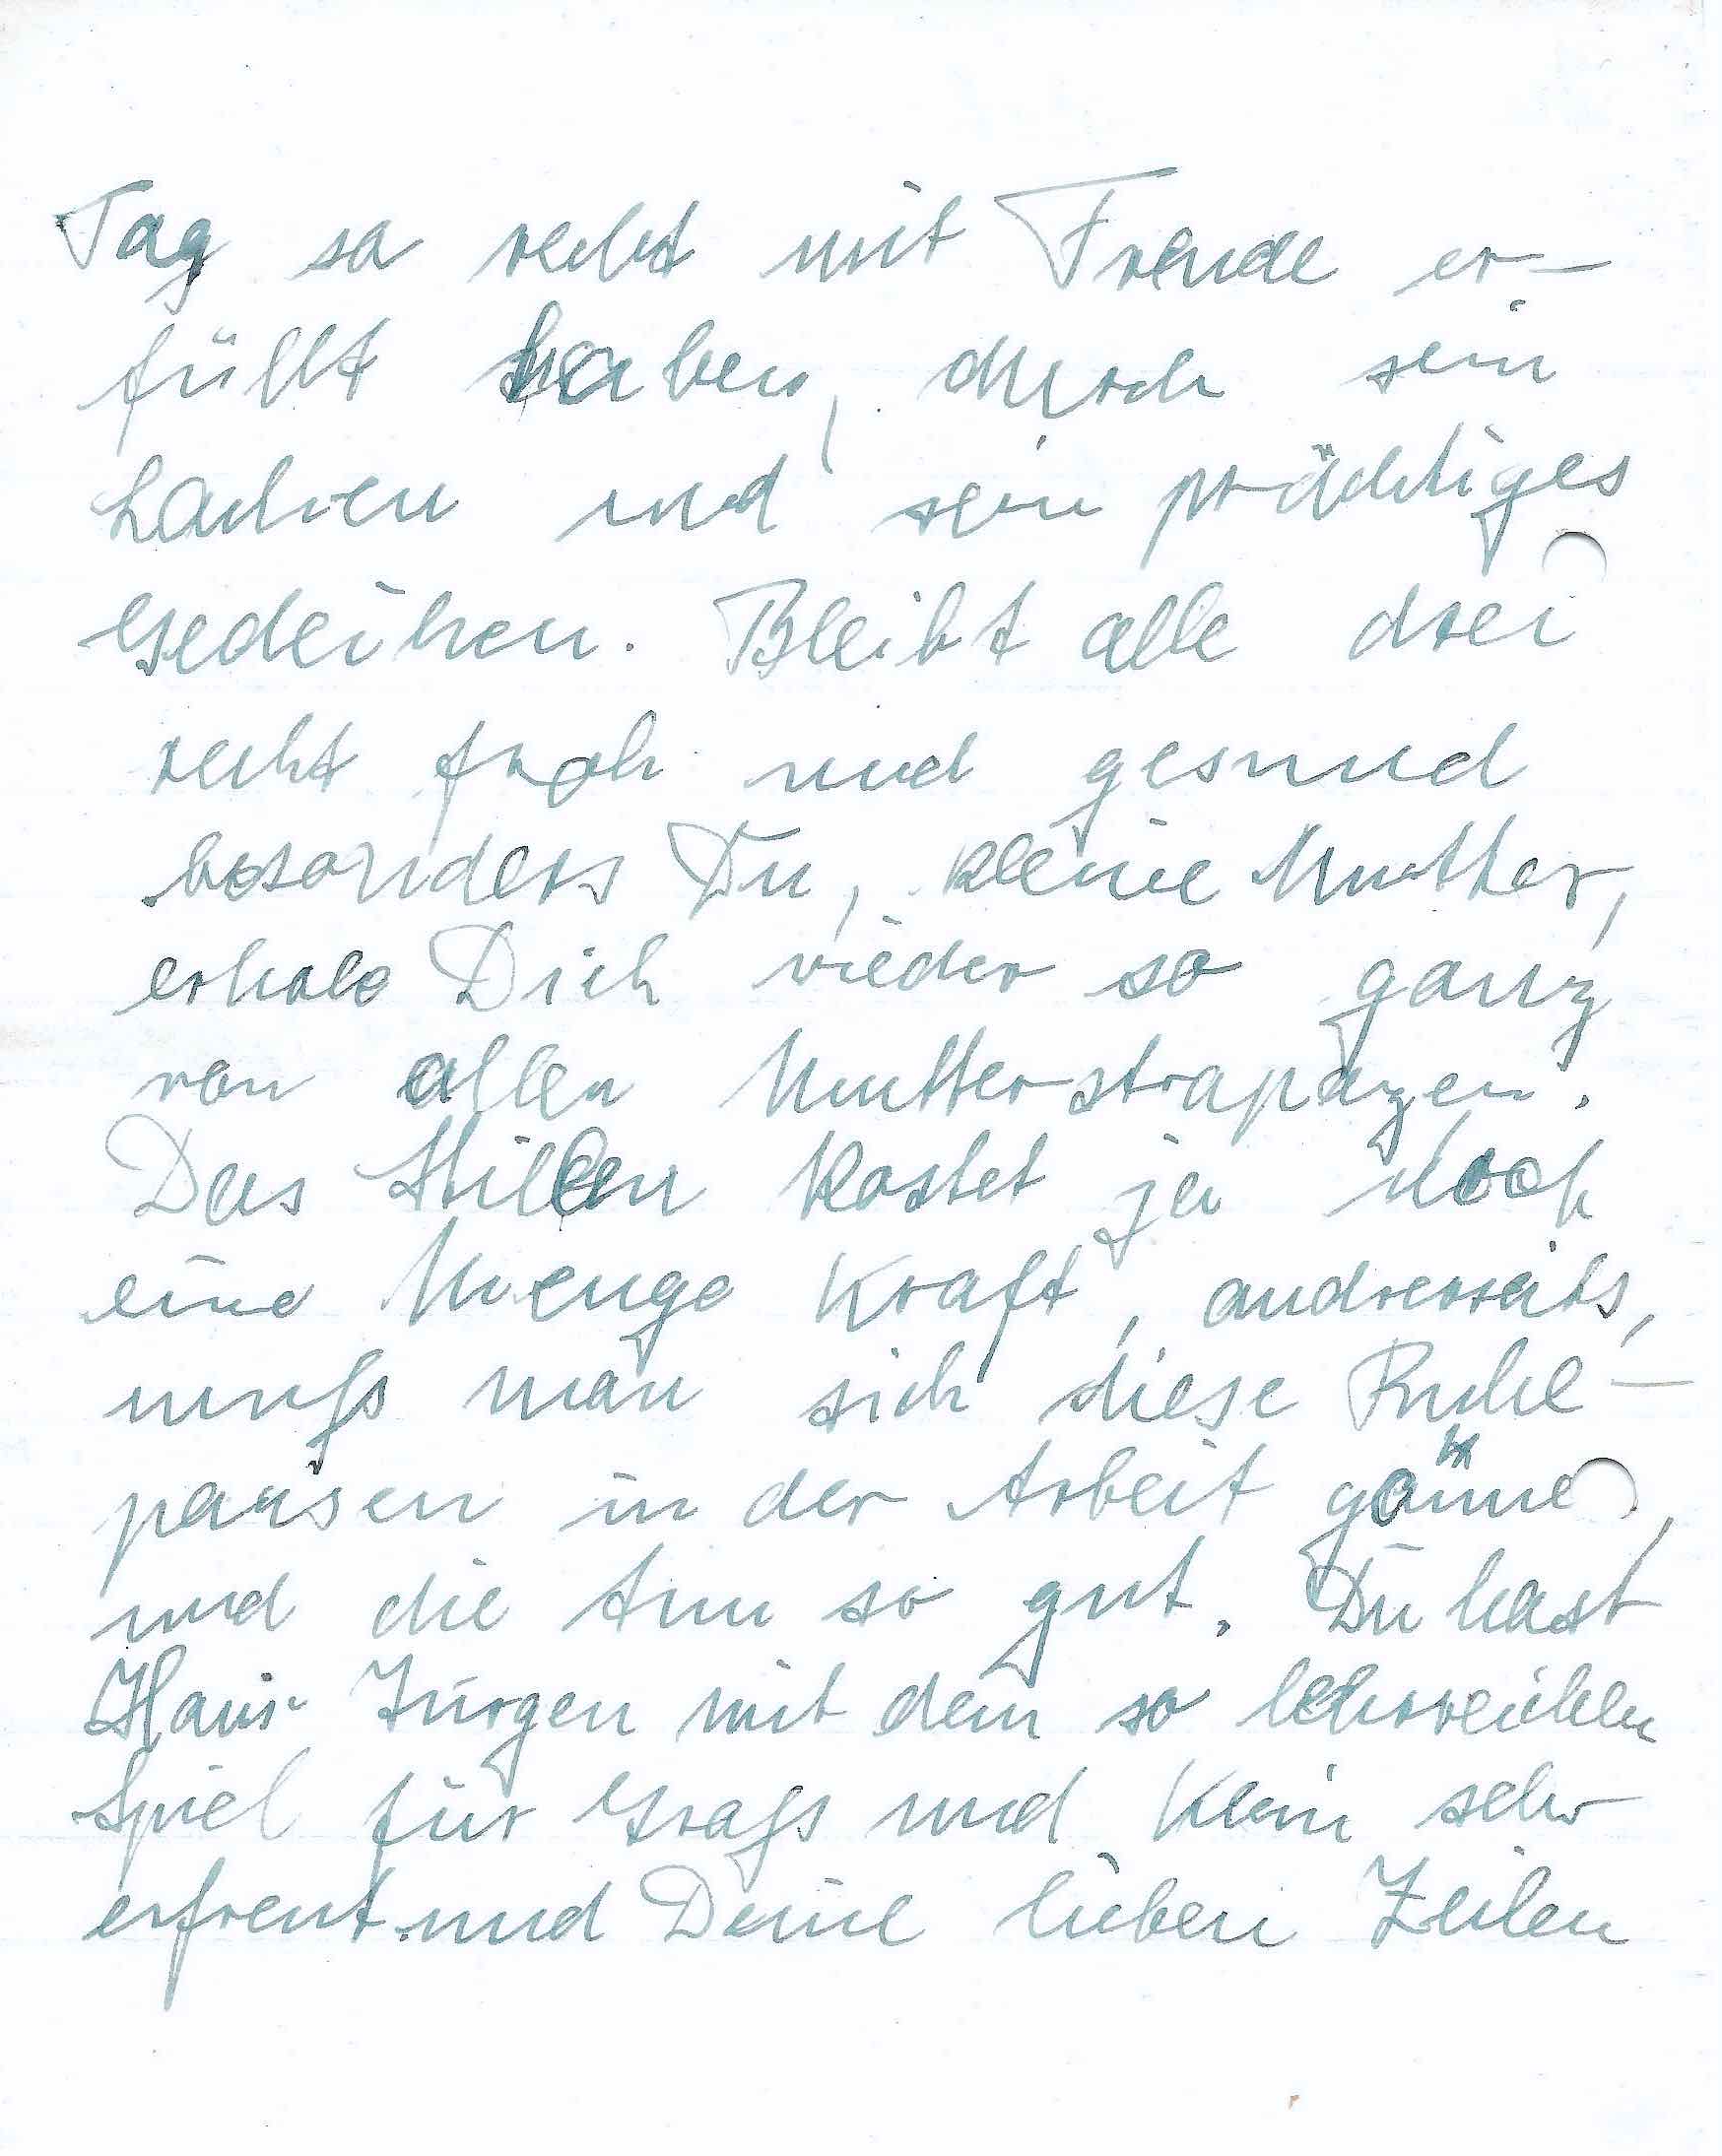 Tag so recht mit Freude er-
füllt haben, durch sein
Lachen und sein prächtiges
Gedeihen. Bleibt alle drei
recht froh und gesund
besonders Du, kleine Mutter,
erhole Dich wieder so ganz
von allen Mutterstrapazen.
Das Stillen kostet ja noch
eine Menge Kraft, andrerseits,
muß man sich diese Ruhe-
pausen in der Arbeit gönne,
und die tun so gut. Du hast
Hans-Jürgen mit dem so lehrreichen
Spiel für Groß und Klein sehr
erfreut und Deine lieben Zeilen